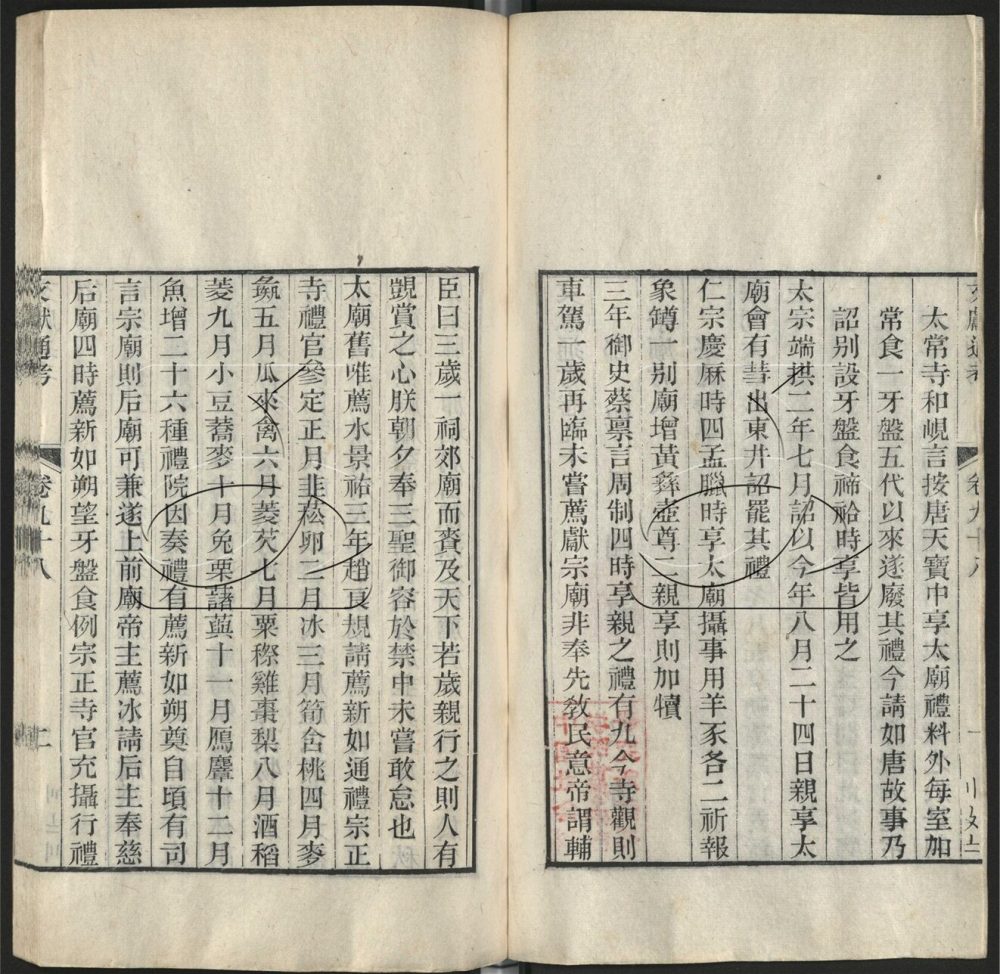 太常寺和峴言按唐天寶中享太廟禮料外每室加
常食一牙盤五代以來遂廢其禮今請如唐故事乃
詔别設牙盤食禘祫時享皆用之
太宗端拱二年七月詔以今年八月二十四日親享太
廟會有彗出東井詔罷其禮
仁宗慶厤時四孟臘時享太廟攝事用羊豕各二祈報
象罇一别廟增黃彝壺尊二親享則加犢
三年御史蔡禀言周制四時享親之禮有九今寺觀則
車駕一歲再臨未嘗薦獻宗廟非奉先敎民意帝謂輔
臣曰三歲一祠郊廟而賚及天下若歲親行之則人有
覬賞之心朕朝夕奉三聖御容於禁中未嘗敢怠也
太廟舊唯薦水景祐三年趙良規請薦新如通禮宗正
寺禮官參定正月韭菘卵二月冰三月筍含桃四月麥
彘五月瓜來禽六月菱芡七月粟穄雞棗梨八月酒稻
菱九月小豆蕎麥十月兔栗藷藇十一月鴈麞十二月
魚增二十六種禮院因奏禮有薦新如朔奠自頃有司
言宗廟則后廟可兼遂上前廟帝主薦冰請后主奉慈
后廟四時薦新如朔望牙盤食例宗正寺官充攝行禮
文獻通考 卷九十八 二